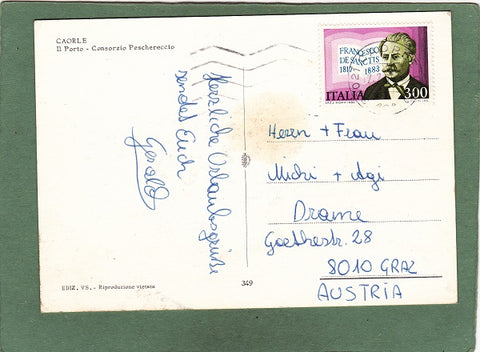 CAORLE
Il Porto - Consorzio Peschereccio
Herzliche Urlaubsgrüße
sendet Euch
Gerald
EDIZ. VS. - Riproduzione vietata
349
FRANCESCO
DE SANCTIS
1817 1883
ITALIA 300
Herrn + Frau
Michi + Agi
Drame
Goethestr. 28
8010 GRAZ
AUSTRIA